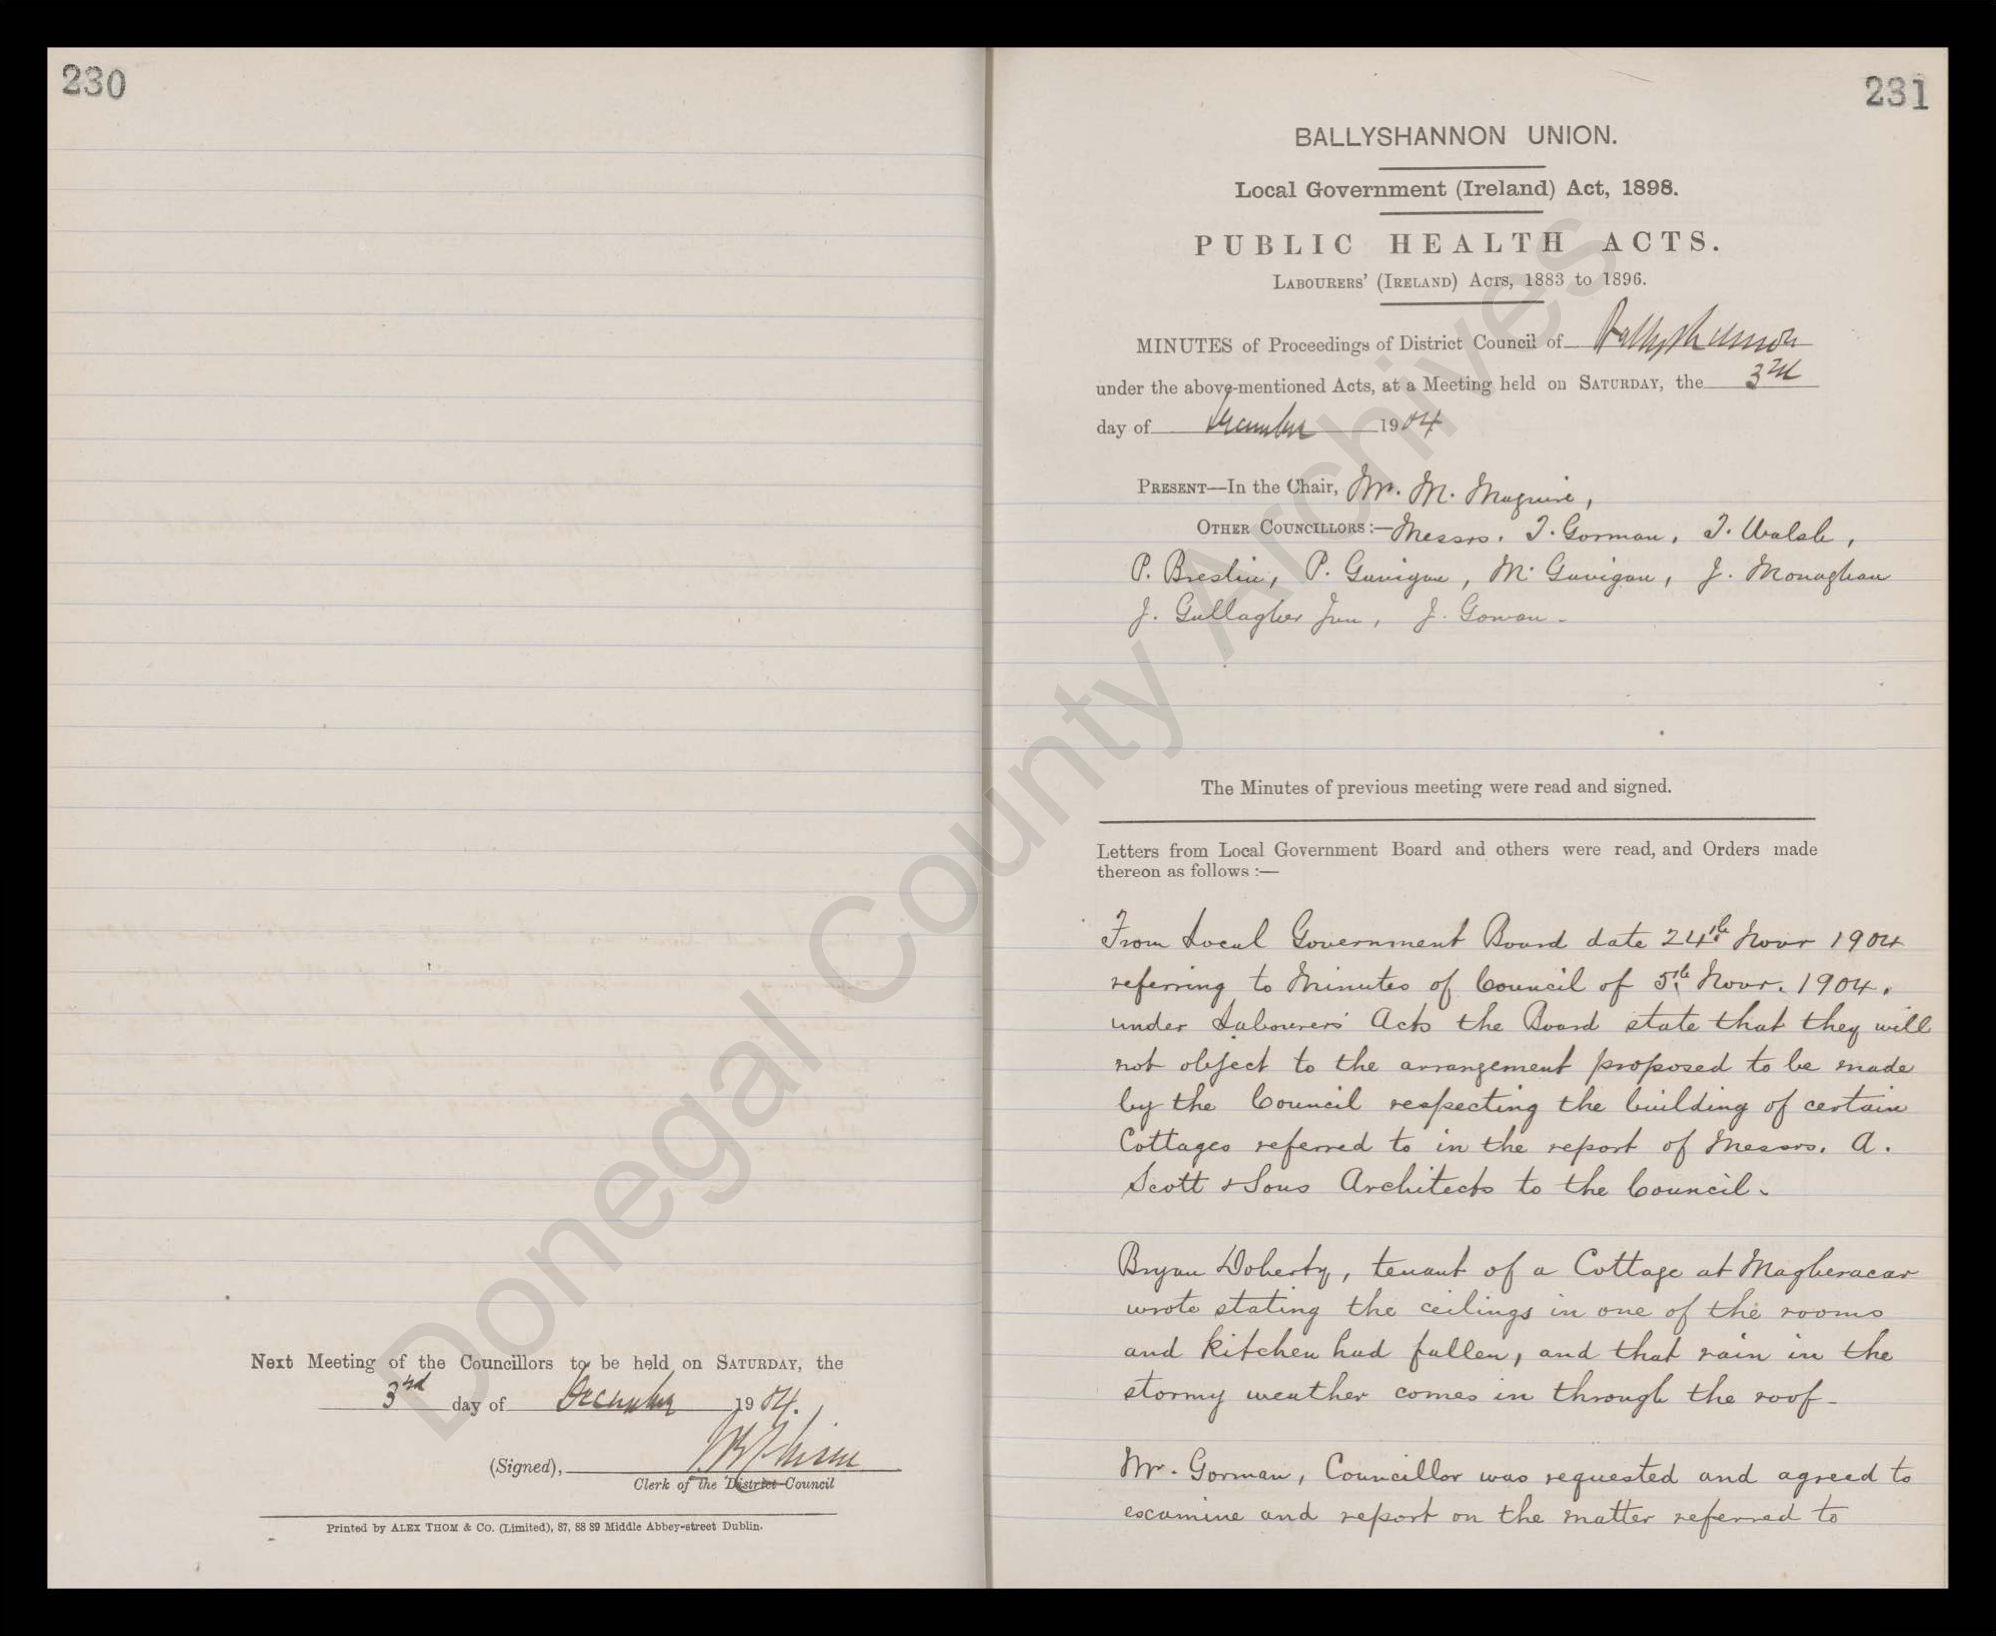 230
Next Meeting of the Councillors to be held on SATURDAY, the
3rd day of December 1904.
(Signed),
Clerk of the District Council
Printed by ALEX THOM & CO. (Limited), 87, 88 89 Middle Abbey-street Dublin.
231
BALLYSHANNON UNION.
Local Government (Ireland) Act, 1898.
PUBLIC HEALTH ACTS.
LABOURERS' (IRELAND) ACTS, 1883 to 1896.
MINUTES of Proceedings of District Council of Ballyshannon
under the above-mentioned Acts, at a Meeting held on SATURDAY, the 3rd
day of December 1904
PRESENT—In the Chair, Mr. M. Maguire,
OTHER COUNCILLORS:—Messrs. T. Gorman, T. Walsh,
P. Breslin, P. Gavigan, M. Gavigan, J. Monaghan
J. Gallagher Jun, J. Gowan.
The Minutes of previous meeting were read and signed.
Letters from Local Government Board and others were read, and Orders made
thereon as follows :—
From Local Government Board date 24th Novr 1904
referring to Minutes of Council of 5th Novr. 1904.
under Labourers' Acts the Board state that they will
not object to the arrangement proposed to be made
by the Council respecting the building of certain
Cottages referred to in the report of Messrs. A.
Scott & Sons Architects to the Council.
Bryan Doherty, tenant of a Cottage at Magheracar
wrote stating the ceilings in one of the rooms
and kitchen had fallen, and that rain in the
stormy weather comes in through the roof-
Mr. Gorman, Councillor was requested and agreed to
examine and report on the matter referred to
Donegal County Archives